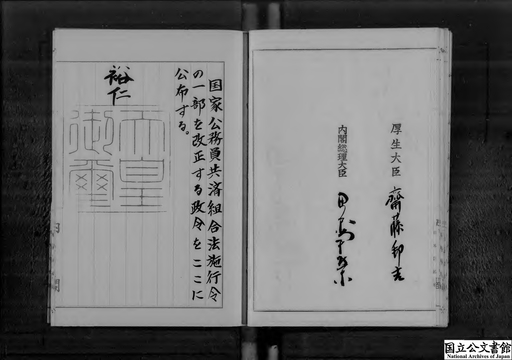 厚生大臣
齋藤邦吉
内閣総理大臣
田中角榮
国家公務員共済組合法施行令
の一部を改正する政令をここに
公布する。
裕仁
天皇
御璽
国立公文書館
National Archives of Japan